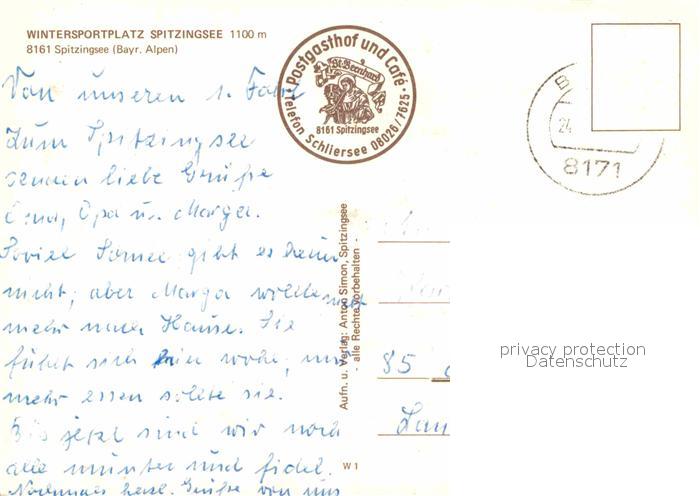 WINTERSPORTPLATZ SPITZINGSEE 1100 m
8161 Spitzingsee (Bayr. Alpen)
Postgasthof und Café
St. Bernhard
8161 Spitzingsee
Telefon Schliersee 08026/7625
8171
24
Von unseren 1. Fahrt
zum Spitzingsee
senden liebe Grüße
Oma, Opa u. Marga.
Soviel Sonne gibt es
nicht, aber Marga wollte nicht
mehr nach Hause. Sie
fühlt sich hier wohl, nur
mehr essen sollte sie.
Bis jetzt sind wir noch
alle munter und fidel.
Nochmals herzl. Grüße von uns
Aufn. u. Verlag: Anton Simon, Spitzingsee
- alle Rechte vorbehalten -
W 1
85
privacy protection
Datenschutz